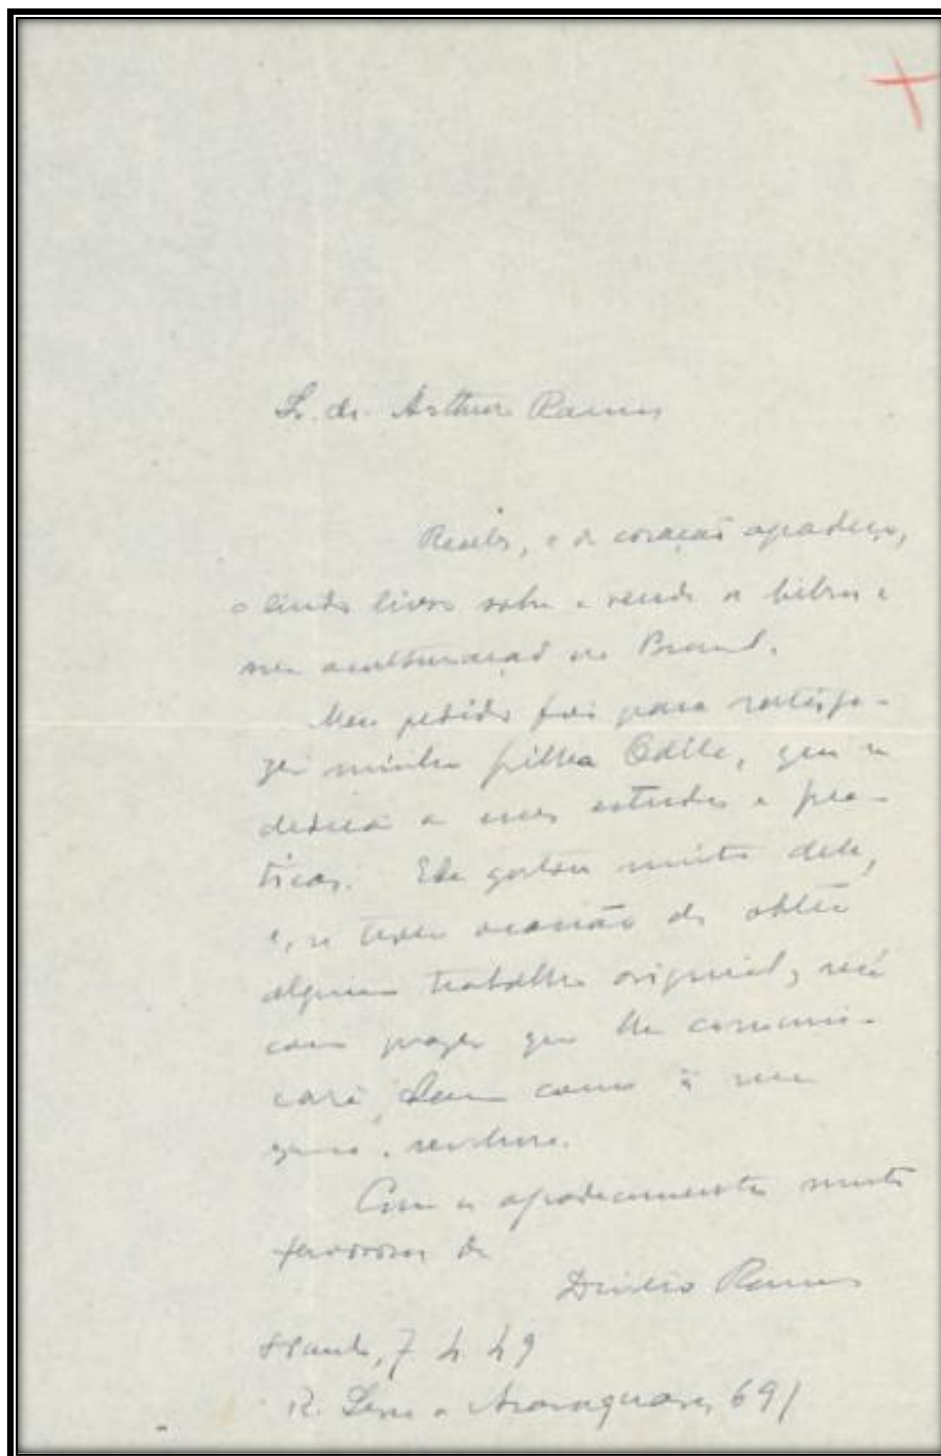 Sr. dr. Arthur Ramos
Recebi, e de coração agradeço,
o lindo livro sobre a renda de bilros e
sua aculturação no Brasil.
Meu pedido foi para satisfa-
zer minha filha Odila, que se
dedica a esses estudos e prá-
ticas. Ela gostou muito dele,
e, se tiver ocasião de obter
algum trabalho original, será
com prazer que lhe comuni-
cará, bem como à sua
senhora.
Com os agradecimentos muito
de
Ramos
S Paulo, 7 4 49
R. Araraquara, 691